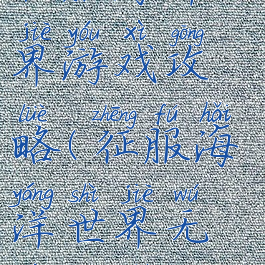 jiè yóu xì gōng
界游戏攻
lüè zhēng fú hǎi
略(征服海
yáng shì jiè wú
洋世界无